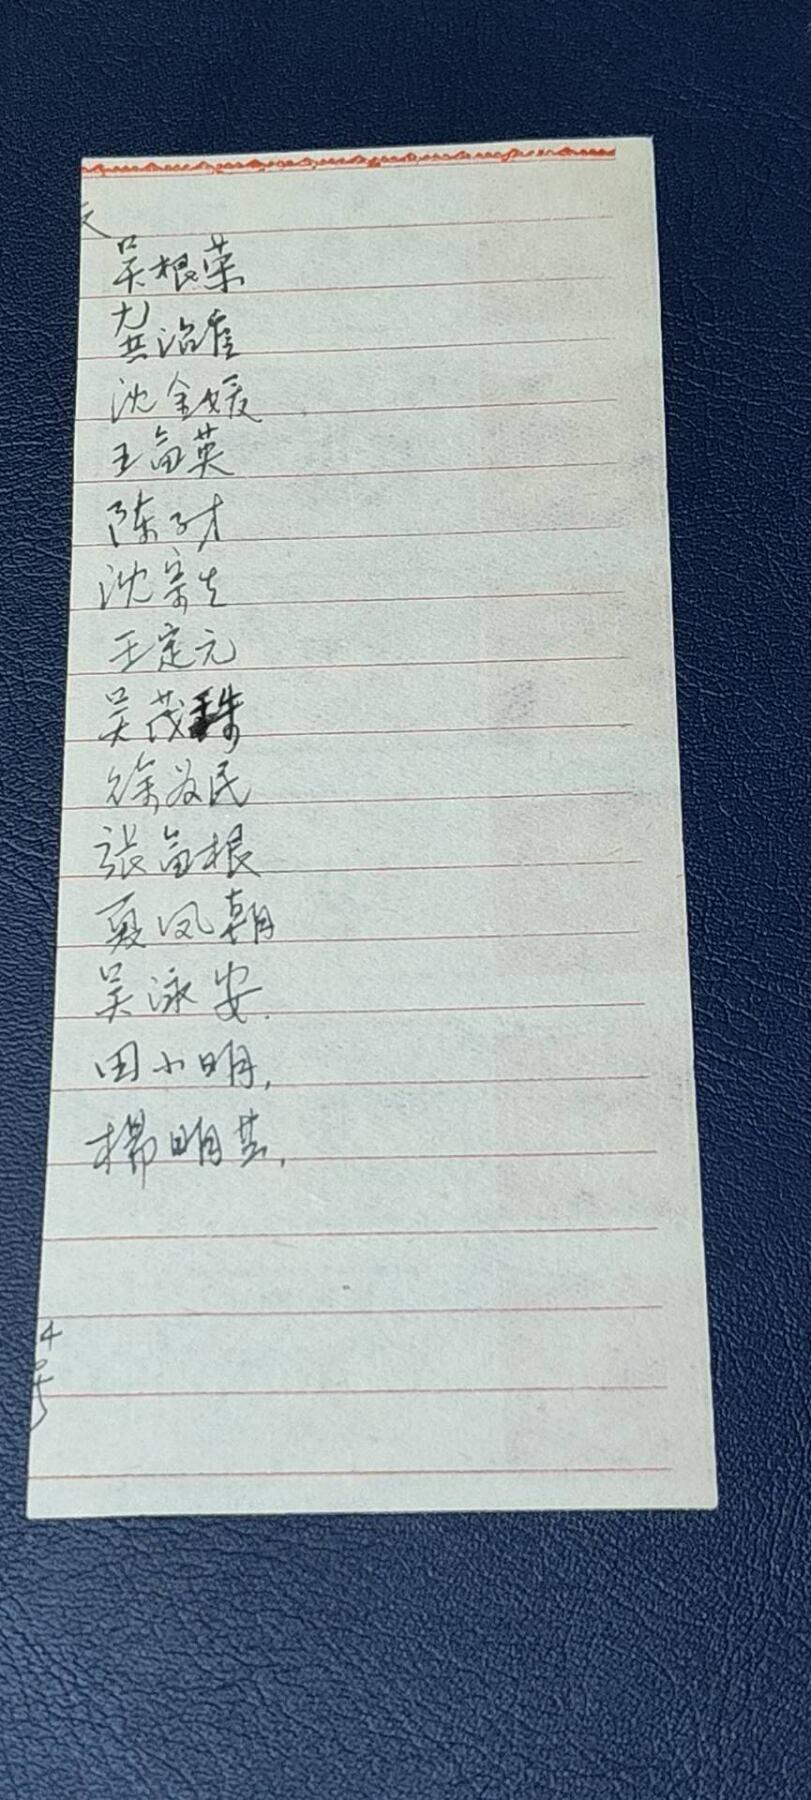 吴根荣
龚治
沈金媛
王富英
陈子才
沈宗生
王定元
吴茂珠
徐为民
张富根
夏凤朝
吴泳安.
田小明,
杨明其,
4号